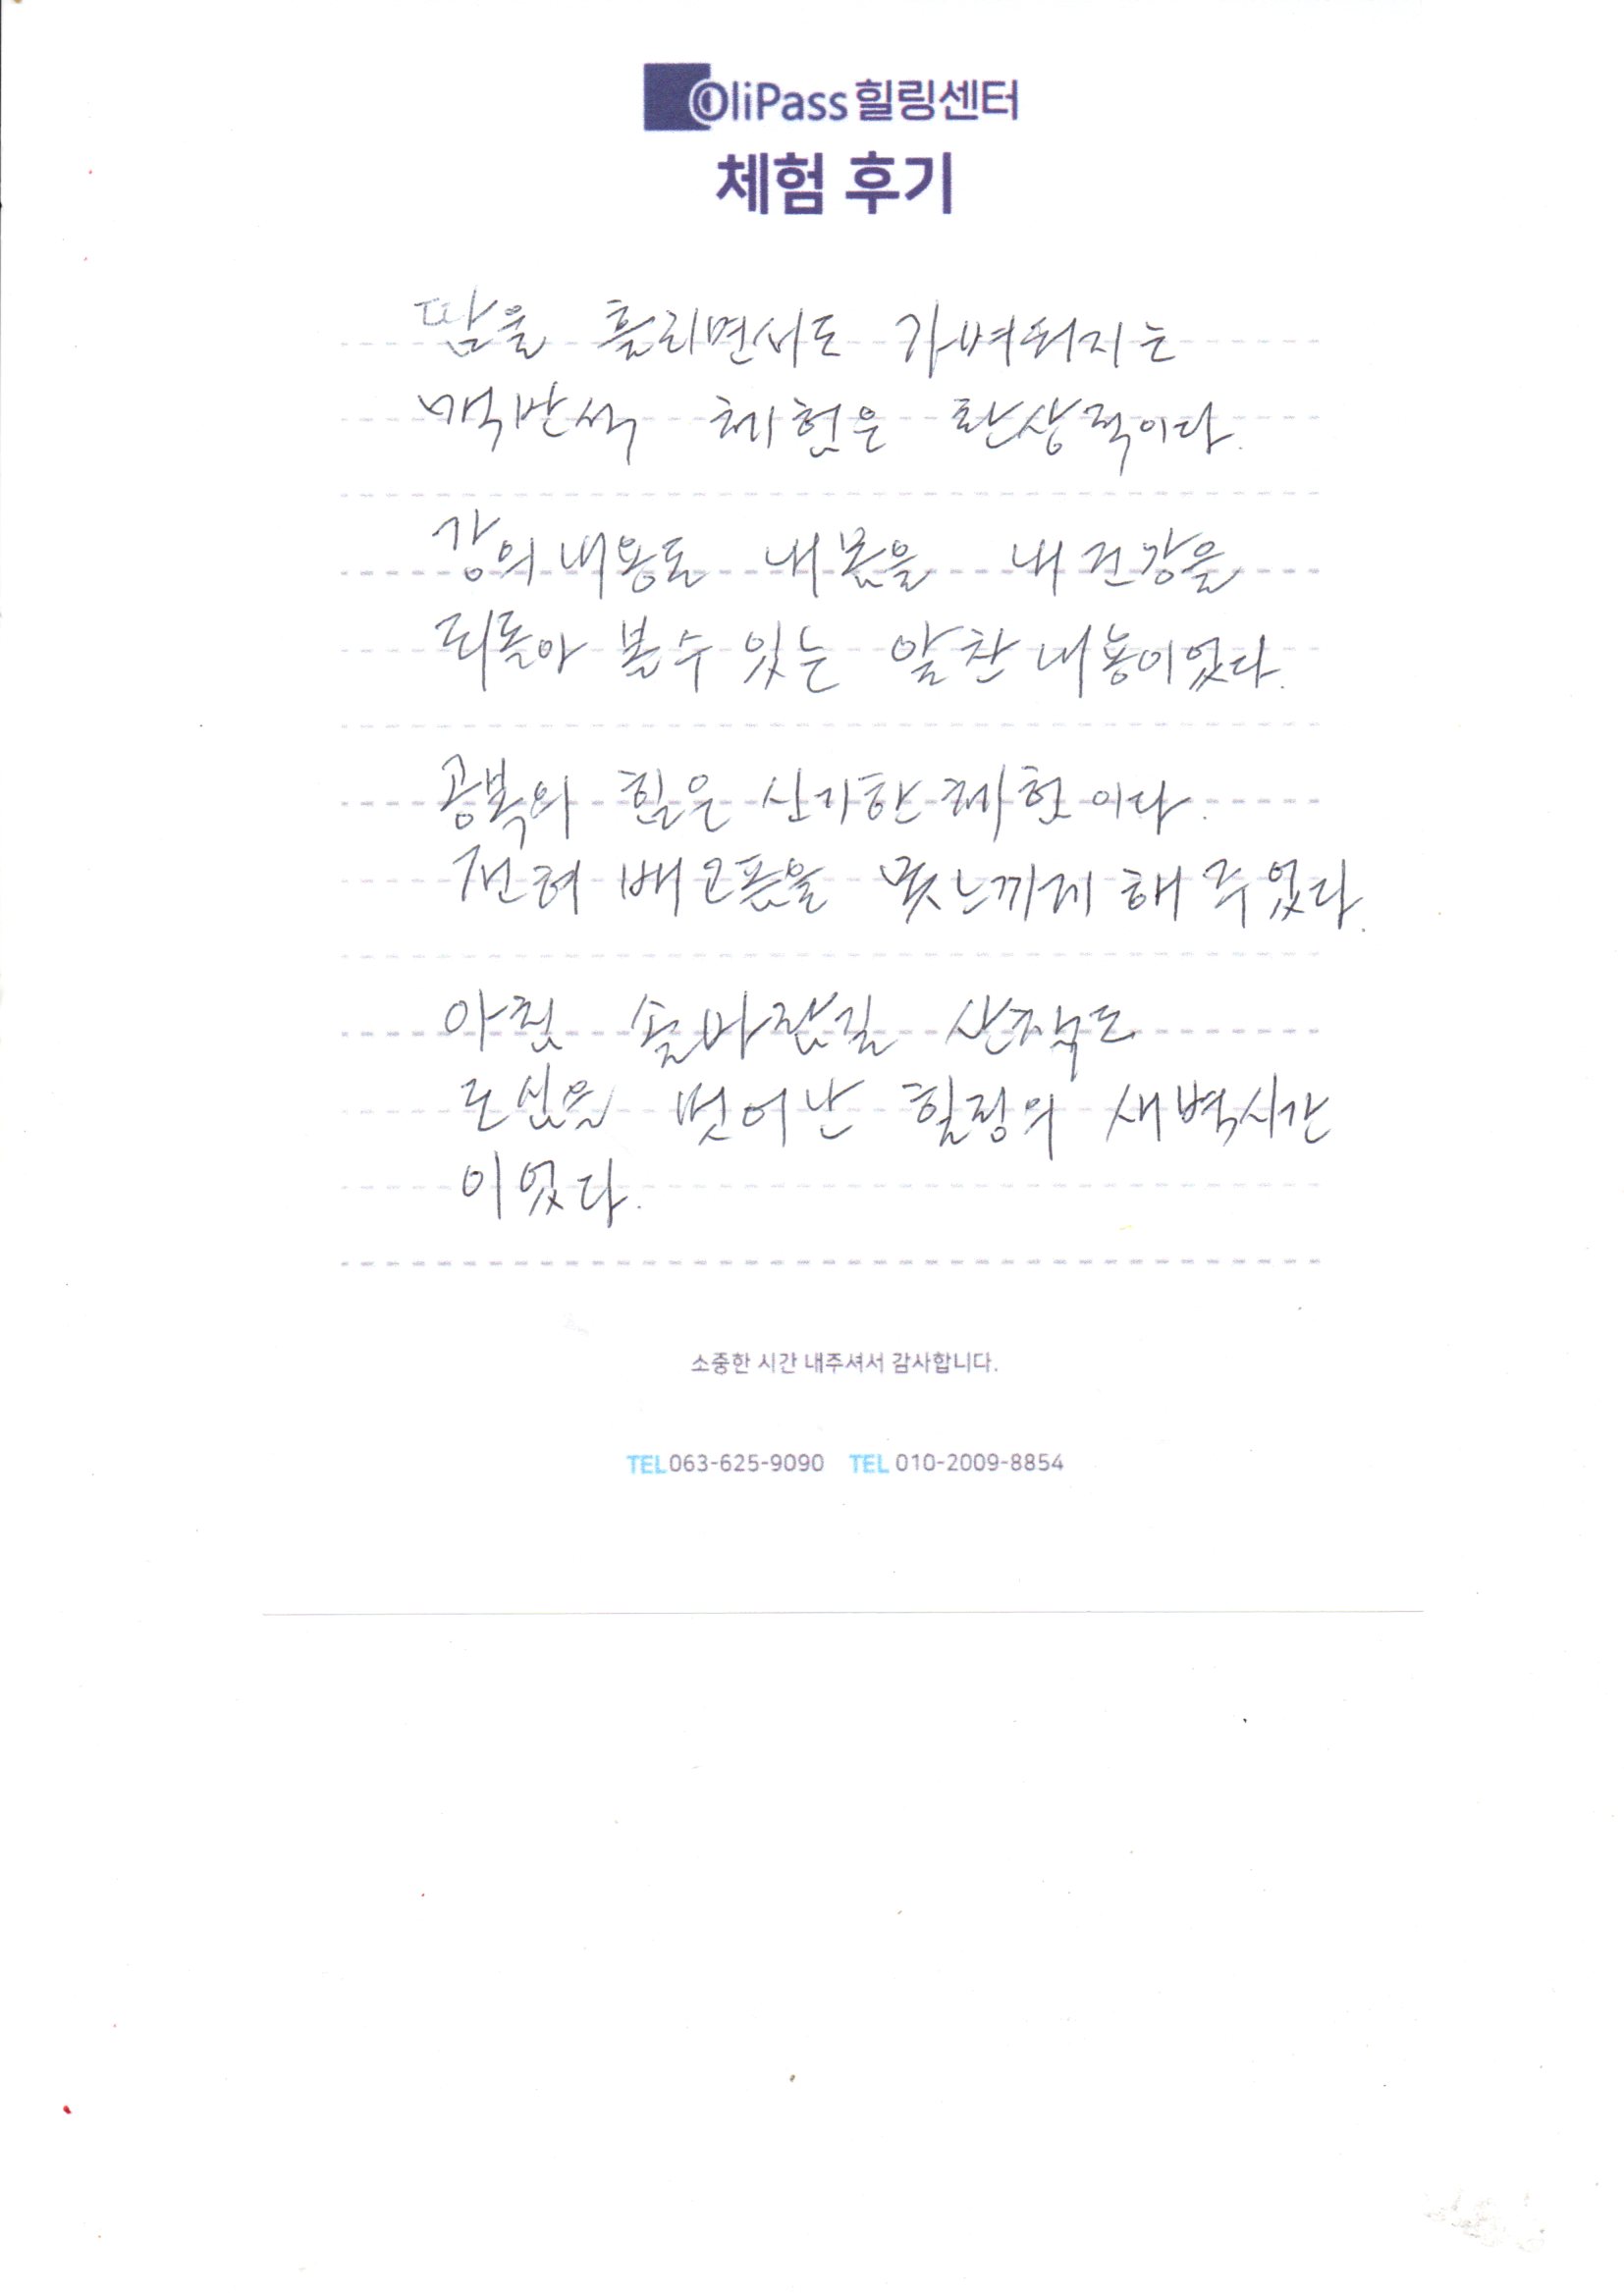 OliPass 힐링센터
체험 후기
땀을 흘리면서도 가벼워지는
맥반석 체험은 환상적이다.
강의 내용도 내 몸을 내 건강을
뒤돌아 볼수 있는 알찬 내용이었다.
공복의 힘은 신기한 체험이다.
전혀 배고픔을 못느끼게 해 주었다.
아침 솔바람길 산책도
도심을 벗어난 힐링의 새벽시간
이었다.
소중한 시간 내주셔서 감사합니다.
TEL 063-625-9090 TEL 010-2009-8854